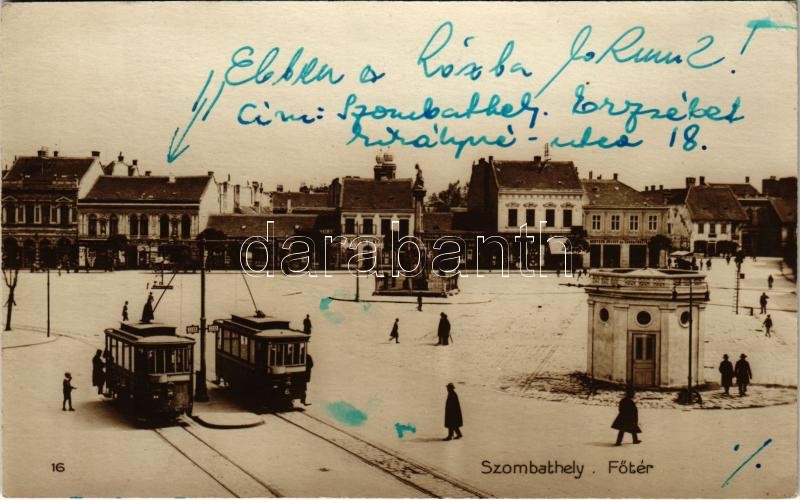 Ebben a házba lakunk!
Cím: Szombathely. Erzsébet
királyné-utca 18.
darabanth
16
Szombathely . Főtér